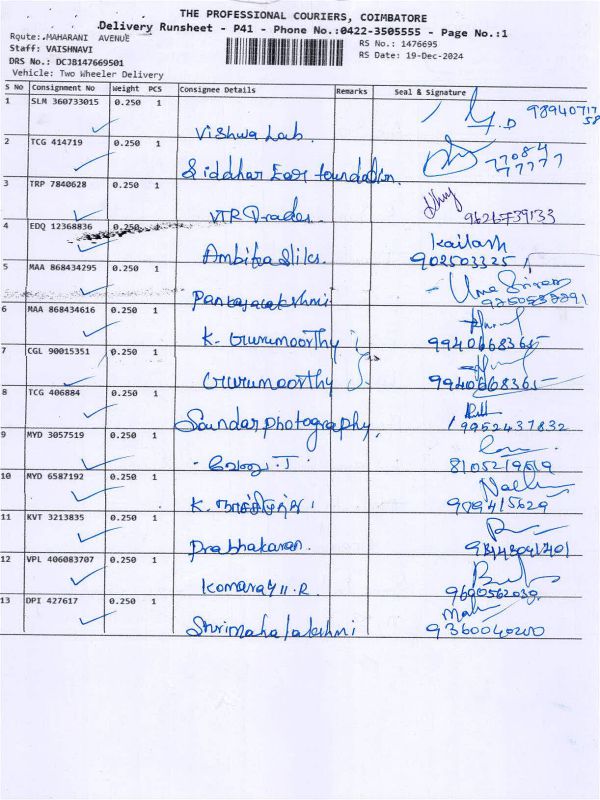 THE PROFESSIONAL COURIERS, COIMBATORE
Delivery Runsheet - P41 - Phone No.:0422-3505555 - Page No.:1
Route: MAHARANI AVENUE
Staff: VAISHNAVI
RS No.: 1476695
DRS No.: DCJB147669501
RS Date: 19-Dec-2024
Vehicle: Two Wheeler Delivery
S No Consignment No Weight PCS Consignee Details Remarks Seal & Signature
1 SLM 360733015 0.250 1 Vishwa Lab.
2 TCG 414719 0.250 1 Siddhar Easi foundation. 77084 77777
3 TRP 7840628 0.250 1 VTR Trades.
4 EDQ 12368836 0.250 1 Ambika Silks. Kailash 902503325
5 MAA 868434295 0.250 1 Pankajalakshmi
6 MAA 868434616 0.250 1 K. Gurumoorthy 9940668365
7 CGL 90015351 0.250 1 Gurumoorthy 9940668365
8 TCG 406884 0.250 1 Soundar photography. 9952437832
9 MYD 3057519 0.250 1 வேலு . J 8105219619
10 MYD 6587192 0.250 1 K.
11 KVT 3213835 0.250 1 Prabhakaran.
12 VPL 406083707 0.250 1 R 9690562039
13 DPI 427617 0.250 1 Shrimahalakshmi 9360040200